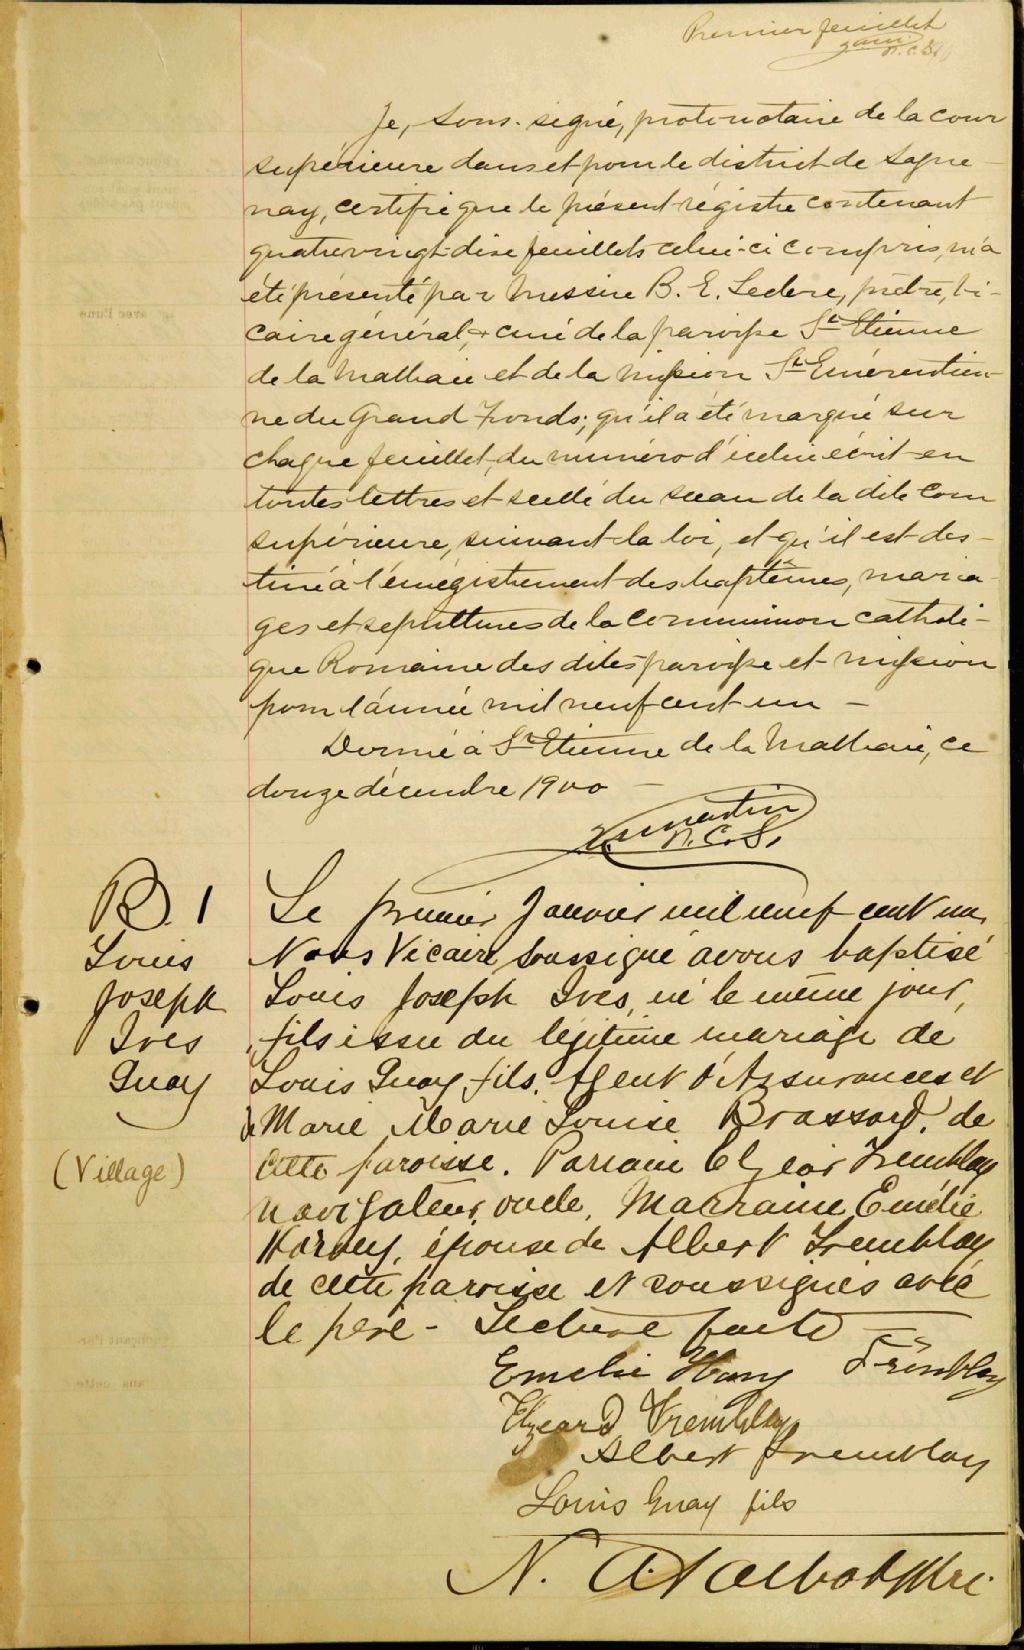 Premier feuillet
P.C.S.
Je, sous-signé, protonotaire de la cour
supérieure dans et pour le district de Sague-
nay, certifie que le présent régistre contenant
quatrevingt-dix feuillets celui-ci compris, m'a
été présenté par Messire B. E. Leclerc, prêtre, vi-
caire général, & curé de la paroisse St Etienne
de la Malbaie et de la mission Ste Emérentien-
ne du Grand Fonds; qu'il a été marqué sur
chaque feuillet, du numéro d'icelui écrit en
toutes lettres et scellé du sceau de la dite cour
supérieure, suivant la loi, et qu'il est des-
tiné à l'enrégistrement des baptêmes, maria-
ges et sépultures de la communion catholi-
que Romaine des dites paroisse et mission
pour l'année mil neuf cent un —
Donné à St Etienne de la Malbaie, ce
douze décembre 1900 —
Martin
P.C.S.
B. 1
Louis
Joseph
Ives
Guay
(Village)
Le premier Janvier mil neuf cent un,
Nous Vicaire soussigné avons baptisé
Louis Joseph Ives, né le même jour,
fils issu du légitime mariage de
Louis Guay fils, Agent d'Assurances et
de Marie Marie Louise Brassard, de
cette paroisse. Parrain Elzéar Tremblay
navigateur, oncle, Marraine Emélie
Harvey, épouse de Albert Tremblay
de cette paroisse et soussignés avec
le père - Lecture faite
Emelie Harvy Tremblay
Elzeard Tremblay
Albert Tremblay
Louis Guay fils
N. A. Talbot Ptre.